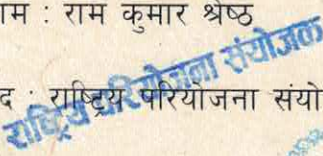 ाम : राम कुमार श्रेष्ठ
राष्ट्रिय परियोजना संयोजक
द : राष्ट्रिय परियोजना संयो